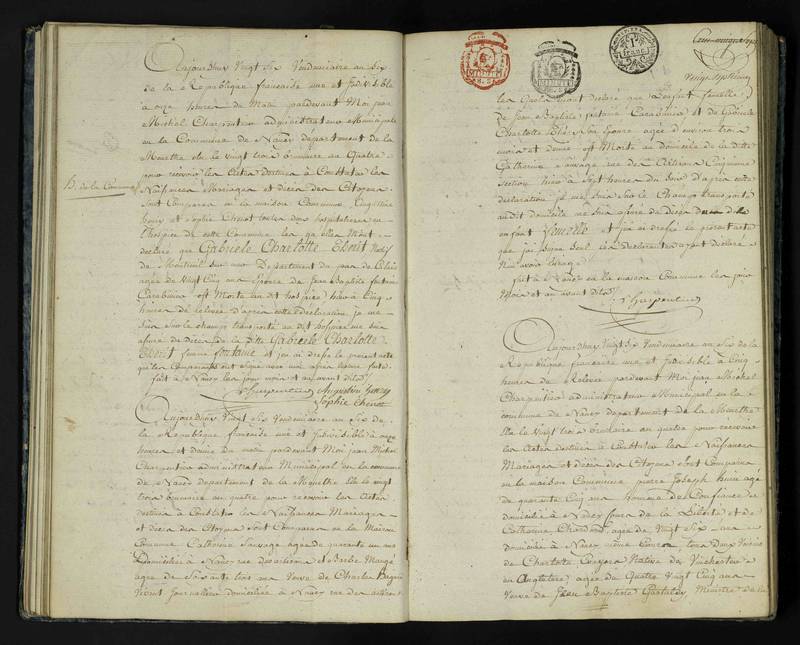 Aujourd'huy Vingt Six Vendemiaire an Six
de la République française une et Indivisible
à onze heures du Matin pardevant Moi jean
Michel Charpentier administrateur Municipal
en la Commune de Nancy département de la
Meurthe élu le vingt trois brumaire an Quatre
pour recevoir les Actes destinés à Constater les
Naissances Mariages et décès des Citoyens
Sont Comparues en la maison Commune Augustine
henry et Sophie Chenot toutes deux hospitalieres en
l'hospice de cette Commune les quelles M'ont
déclaré que Gabriele Charlotte Native
de Montreuil sur mer Département du pas de Calais
agée de vingt Cinq ans Epouse de Jean Baptiste fontaine
Carabinier est Morte audit hospice hier à Cinq
heures de relevée d'après cette déclaration je me
suis sur le champ transporté au dit hospice me suis
assuré du Décès de la ditte Gabriele Charlotte
femme fontaine et j'en ai dressé le present acte
que les Comparantes ont signé avec moi après lecture faite
fait à Nancy les jour mois et an avant dits
Charpentier Augustine henry
Sophie Chenot
H. de la Commune
Aujourd'huy Vingt Six Vendemiaire an Six de
la République française une et Indivisible à onze
heures et demie du matin pardevant Moi jean Michel
Charpentier administrateur Municipal de la commune
de Nancy département de la Meurthe élu le vingt
trois brumaire an quatre pour recevoir les Actes
destinés à Constater les Naissances Mariages
et décès des Citoyens Sont Comparues en la Maison
Commune Catherine Sauvage agée de quarante un ans
Domiciliée à Nancy rue des artisans et Barbe Mangé
agée de Soixante trois ans Veuve de Charles
Vivant journalier domiciliée à Nancy rue des artisans
1 franc
Vingt Sept
les Quelles m'ont déclaré que l'enfant femelle
de Jean Baptiste fontaine Carabinier et de Gabriele
Charlotte Son Epouse agée d'environ trois
mois et demie est Morte au domicile de la ditte
Catherine Sauvage rue des Artisans Cinquieme
Section hier à Sept heures du Soir d'après cette
déclaration je me suis Sur le Champ transporté
audit domicile me suis assuré du Décès du dit
enfant femelle et j'en ai dressé le present acte
que j'ai signé seul les Declarantes ayant declaré
N'en savoir l'usage
fait à Nancy en la maison Commune les jour
Mois et an avant dits
Charpentier
Aujourd'huy Vingt Six Vendemiaire an Six de la
République française une et Indivisible à Cinq
heures de Relevée pardevant Moi jean Michel
Charpentier administrateur Municipal en la
commune de Nancy departement de la Meurthe
Elu le Vingt trois brumaire an quatre pour recevoir
les Actes destinés à Constater les Naissances
Mariages et décès des Citoyens Sont Comparus
en la maison Commune pierre Joseph agé
de quarante Cinq ans homme de Confiance
domicilié à Nancy Cours de la Liberté et de
Catherine Chardon agée de Vingt Six ans
domiciliée à Nancy même Cours tous Deux Voisins
de Charlotte Native de Vinchester
en Angleterre agée de Quatre Vingt Cinq ans
Veuve de Jean Baptiste Ministre de